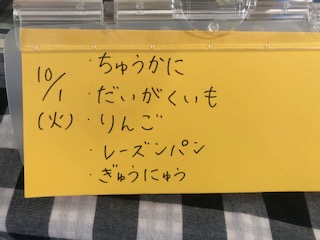 10/1
(火)
・ちゅうかに
・だいがくいも
・りんご
・レーズンパン
・ぎゅうにゅう